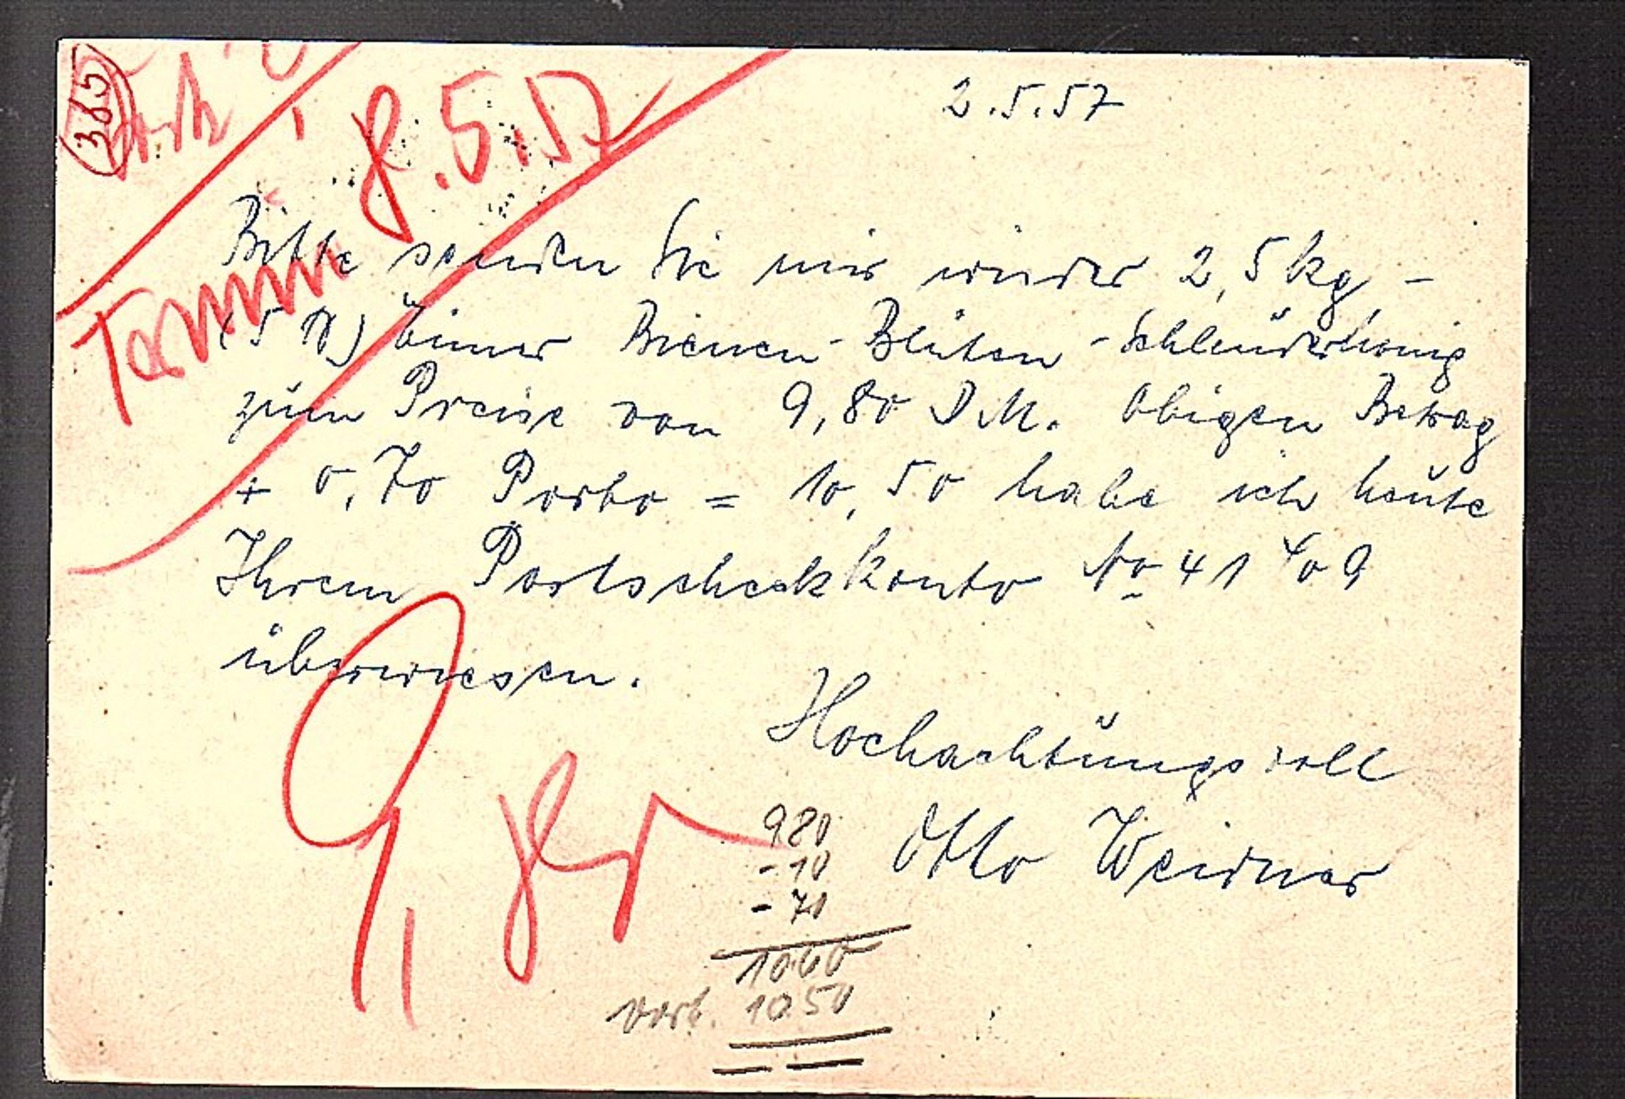 385
8.5.57
2.5.57
Bitte senden Sie mir wieder 2,5 kg -
(5 ℔) Eimer Bienen-Blüten-Schleuderhonig
zum Preise von 9,80 DM. Obigen Betrag
+ 0,70 Porto = 10,50 habe ich heute
Ihrem Postscheckkonto No 41 409
überwiesen.
Hochachtungsvoll
Otto Weidner
9,80
980
-10
-70
1060
1050